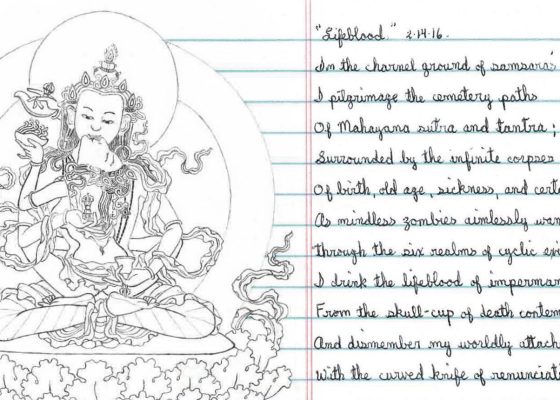 "Lifeblood." 2-14-16.
In the charnel ground of samsara's
I pilgrimage the cemetery paths
Of Mahayana sutra and tantra;
Surrounded by the infinite corpses
Of birth, old age, sickness, and
As mindless zombies aimlessly
Through the six realms of cyclic
I drink the lifeblood of
From the skull-cup of death
And dismember my worldly
With the curved knife of